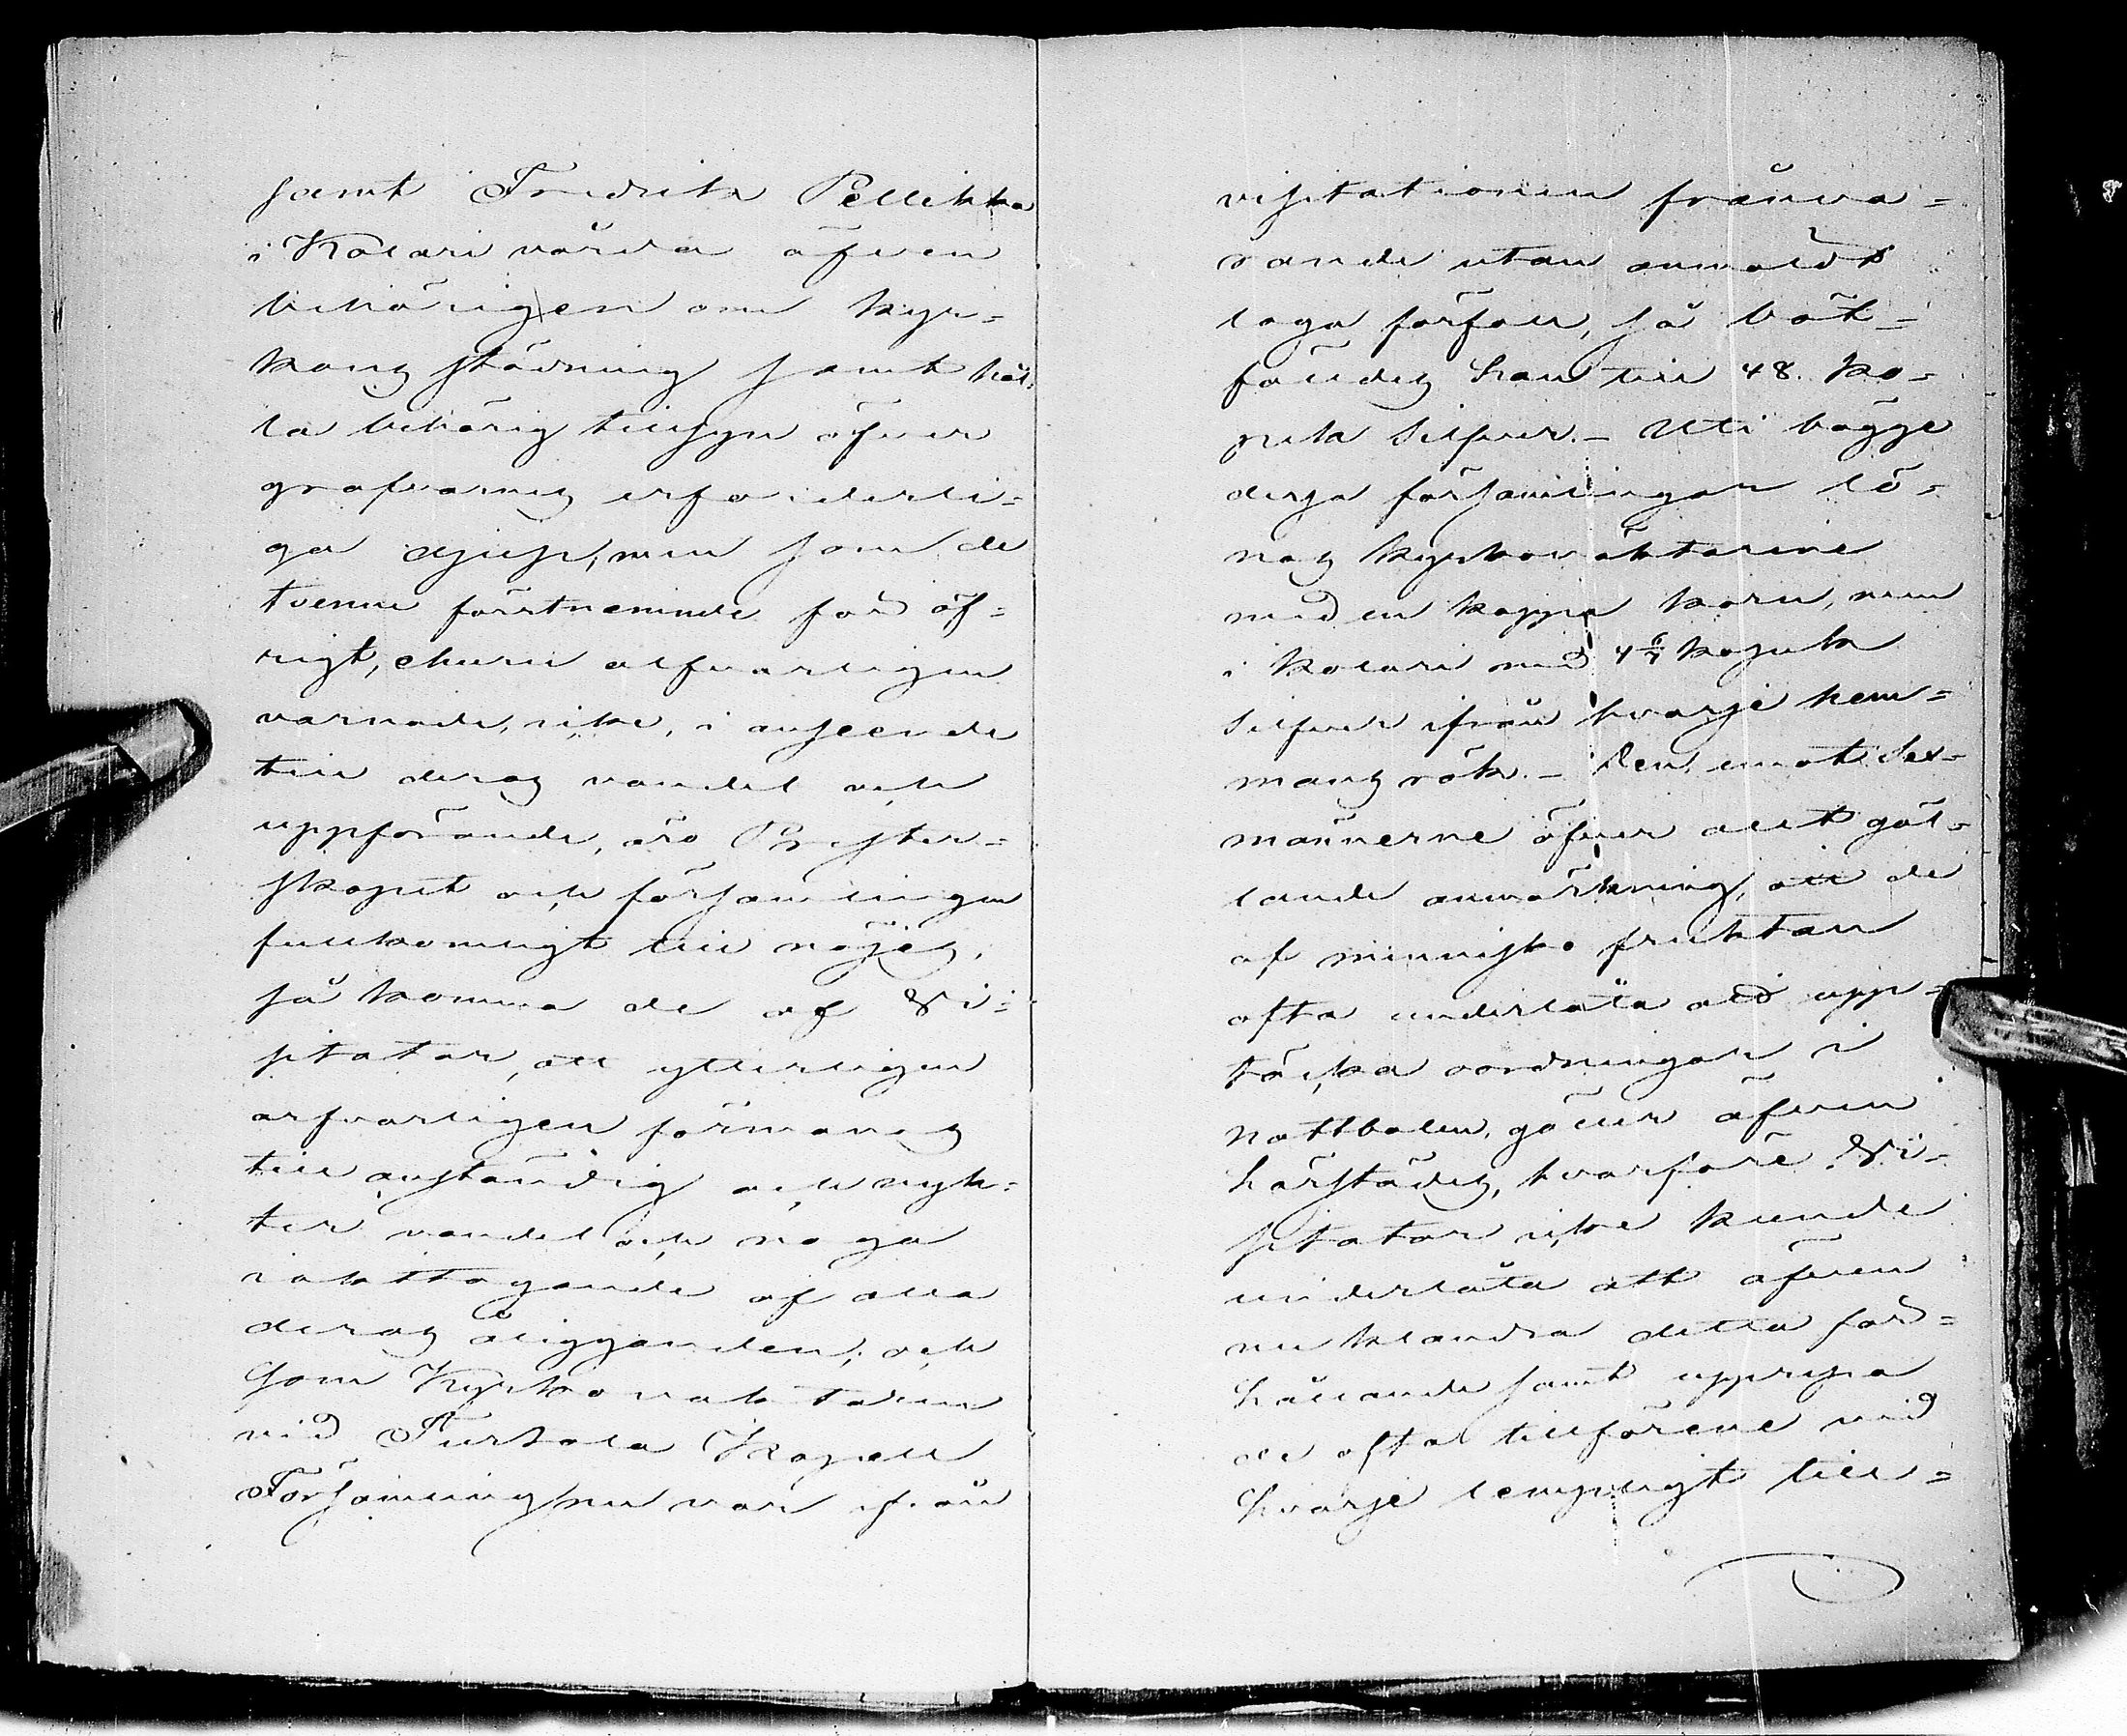 samt Fredrik Pellikka
i Kolari vårda äfven
behörigen om kyr=
kans städning samt hål=
la behörig tillsyn öfver
grafvarnes erforderli=
ga djup; men som de
tvenne förstnemnde för öf=
rigt, churu alfvarligen
varnade, icke, i anseende
till deras vandel och
uppförande, äro Prester=
skapet och församlingen
fullkomligt till nöjes,
så komma de af Vi=
sitator, att ytterligen
arfvarligen förmanas
till anständig och nyk=
ter vandel och noga
iakttagande af alla
deras åligganden; och
som Kyrkovaktaren
vid Turtola Kapell
Församling nu var ifrån
visitationen frånva=
rande utan anmäldt
laga förfall, så böt=
fälldes han till 48. ko=
pek Silfver. – Uti bägge
dessa församlingar lö=
nas kyrkoväktarene
med en kappa korn, men
i Kolari med 4 6/7 kopek
Silfver ifrån hvarje hem=
mans rök. – Den emot Sex=
männerne öfver allt gäl=
lande anmärkning, att de
af mennisko fruktan
ofta underlåta att upp=
täcka oordningar i
nattbalen, gäller äfven
härstädes, hvarföre Vi=
sitator icke kunde
underlåta att äfven
nu klandra detta för=
hållande samt upprepa
de ofta tillförene vid
hvarje lempligt till=